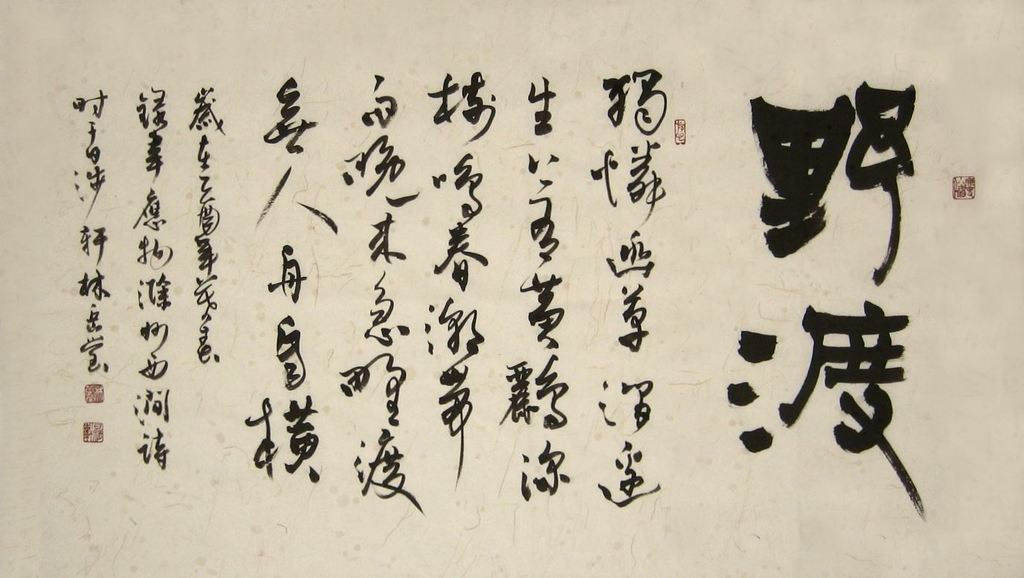 野渡
獨憐幽草澗邊
生上有黃鸝深
樹鳴春潮帶
雨晚來急野渡
無人舟自橫
歲在乙酉年莫春
錄韋應物滁州西澗詩
时于日涉軒林岳